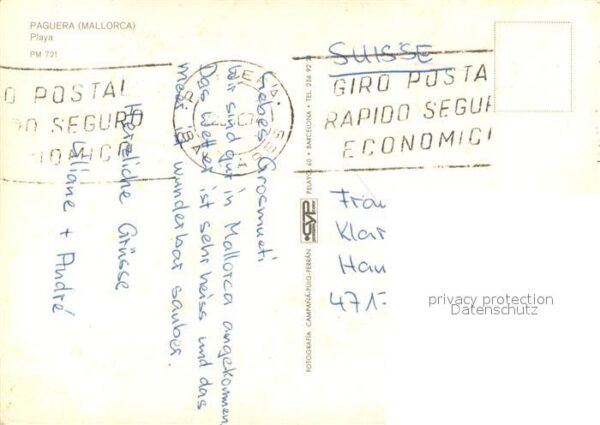 PAGUERA (MALLORCA)
Playa
PM 721
O POSTAL
DO SEGURO
NOMICO
GIRO POSTA
RAPIDO SEGUR
ECONOMICO
SUISSE
Liebes Grosmueti
Wir sind gut in Mallorca angekommen,
Das Wetter ist sehr heiss und das
meer ist wunderbar sauber.
Herzliche Grüsse
Liliane + André
FOTOGRAFÍA CAMPAÑÁ-PUIG-FERRÁN
CYP
PELAYO, 60 - BARCELONA - TEL. 236 92
Frau
Klar
Hau
4717
privacy protection
Datenschutz